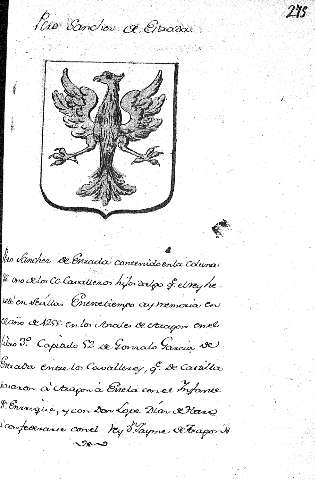 275
Pero Sanchez de Estrada
Pero Sanchez de Estrada contenido en la coluna
uno de los CC Cavalleros hijosdalgo q.e el rey he
redó en Sevilla. En este tiempo ay memoria en
el año de 1255 en los Anales de Aragon en el
libro 3º Capitulo 52 de Gonzalo Garcia de
Estrada entre los Cavalleros, q.e de Castilla
pasaron á Aragon á Estela con el Infante
D. Enrrique, y con Don Lope Diaz de Haro
á confederarse con el Rey D. Jayme de Aragon